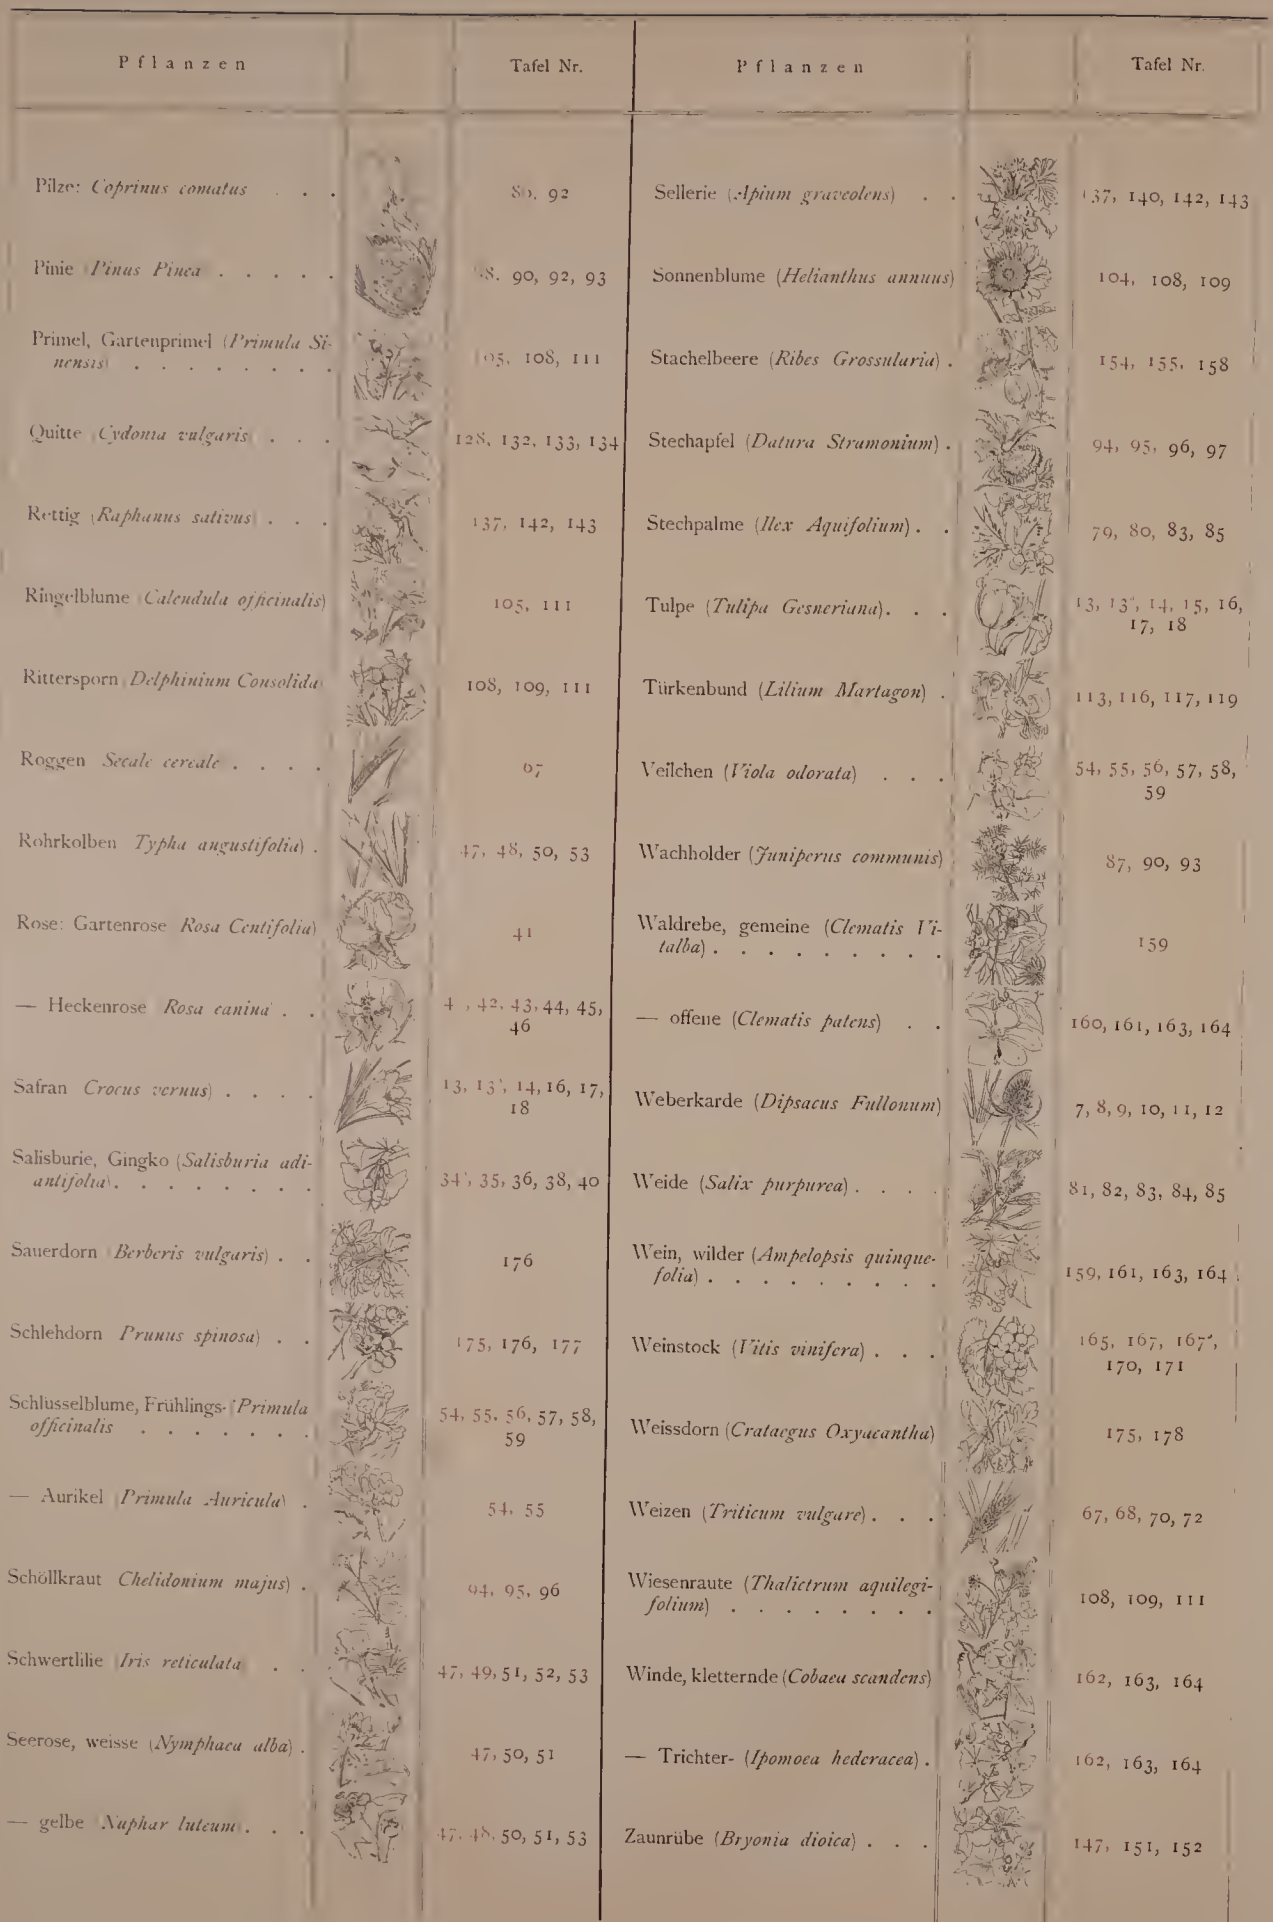 Pflanzen Tafel Nr.
Pilze: Coprinus comatus . . . 92
Pinie Pinus Pinea . . . . . 90, 92, 93
Primel, Gartenprimel (Primula Si-
nensis) . . . . . . . . 108, 111
Quitte (Cydonia vulgaris) . . . 128, 132, 133, 134
Rettig (Raphanus sativus) . . . 137, 142, 143
Ringelblume (Calendula officinalis) 105, 111
Rittersporn (Delphinium Consolida) 108, 109, 111
Roggen Secale cereale . . . . 67
Rohrkolben Typha angustifolia) . 47, 48, 50, 53
Rose: Gartenrose Rosa Centifolia) 41
— Heckenrose Rosa canina . . 42, 43, 44, 45,
46
Safran Crocus vernus) . . . . 13, 13', 14, 16, 17,
18
Salisburie, Gingko (Salisburia adi-
antifolia). . . . . . . . 34', 35, 36, 38, 40
Sauerdorn (Berberis vulgaris) . . 176
Schlehdorn Prunus spinosa) . . 175, 176, 177
Schlüsselblume, Frühlings- (Primula
officinalis . . . . . . . 54, 55, 56, 57, 58,
59
— Aurikel (Primula Auricula) . 54, 55
Schöllkraut Chelidonium majus) . 94, 95, 96
Schwertlilie (Iris reticulata . . 47, 49, 51, 52, 53
Seerose, weisse (Nymphaea alba) . 47, 50, 51
— gelbe (Nuphar luteum) . . . 47, 48, 50, 51, 53
Pflanzen Tafel Nr.
Sellerie (Apium graveolens) . . 137, 140, 142, 143
Sonnenblume (Helianthus annuus) 104, 108, 109
Stachelbeere (Ribes Grossularia) . 154, 155, 158
Stechapfel (Datura Stramonium) . 94, 95, 96, 97
Stechpalme (Ilex Aquifolium) . . 79, 80, 83, 85
Tulpe (Tulipa Gesneriana). . . 13, 13', 14, 15, 16,
17, 18
Türkenbund (Lilium Martagon) . 113, 116, 117, 119
Veilchen (Viola odorata) . . . 54, 55, 56, 57, 58,
59
Wachholder (Juniperus communis) 87, 90, 93
Waldrebe, gemeine (Clematis Vi-
talba) . . . . . . . . . 159
— offene (Clematis patens) . . 160, 161, 163, 164
Weberkarde (Dipsacus Fullonum) 7, 8, 9, 10, 11, 12
Weide (Salix purpurea) . . . . 81, 82, 83, 84, 85
Wein, wilder (Ampelopsis quinque-
folia) . . . . . . . . . 159, 161, 163, 164
Weinstock (Vitis vinifera) . . . 165, 167, 167',
170, 171
Weissdorn (Crataegus Oxyacantha) 175, 178
Weizen (Triticum vulgare) . . . 67, 68, 70, 72
Wiesenraute (Thalictrum aquilegi-
folium) . . . . . . . . 108, 109, 111
Winde, kletternde (Cobaea scandens) 162, 163, 164
— Trichter- (Ipomoea hederacea) . 162, 163, 164
Zaunrübe (Bryonia dioica) . . . 147, 151, 152